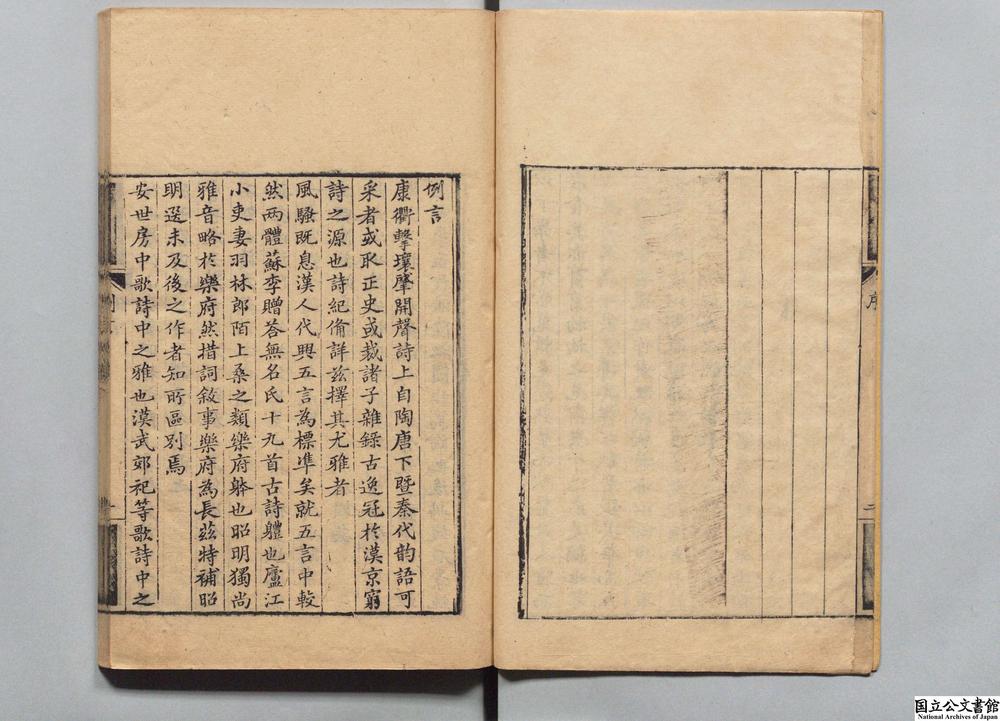 序
二
例言
康衢擊壤肇開聲詩上自陶唐下暨秦代韵語可
采者或取正史或裁諸子雜錄古逸冠於漢京窮
詩之源也詩紀備詳茲擇其尤雅者
風騷既息漢人代興五言為標準矣就五言中較
然兩體蘇李贈荅無名氏十九首古詩軆也廬江
小吏妻羽林郎陌上桑之類樂府躰也昭明獨尚
雅音略於樂府然措詞敘事樂府為長茲特補昭
明選未及後之作者知所區別焉
安世房中歌詩中之雅也漢武郊祀等歌詩中之
国立公文書館
National Archives of Japan